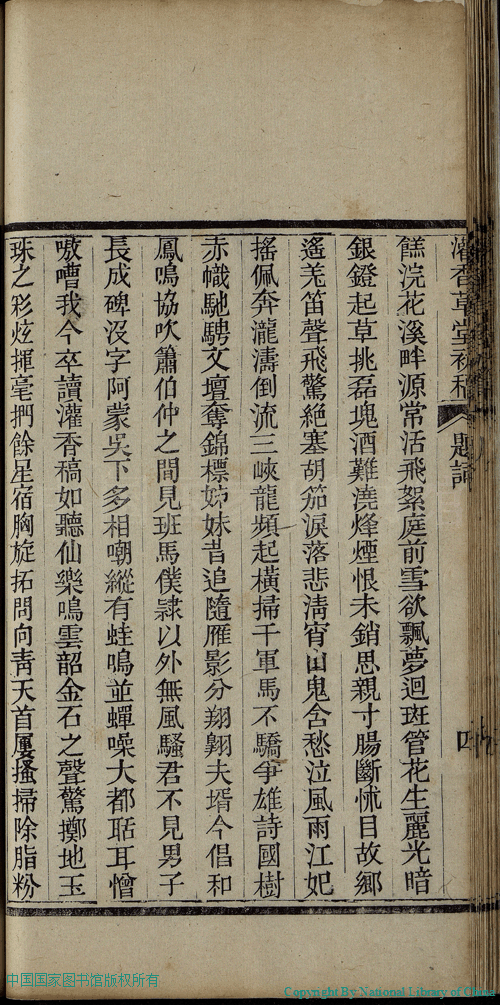 灌香草堂初稿 題詩 四
餻浣花溪畔源常活飛絮庭前雪欲飄夢迴斑管花生麗光暗
銀鐙起草挑磊塊酒難澆烽煙恨未銷思親寸腸斷怵目故鄉
遙羌笛聲飛驚絕塞胡笳淚落悲淸宵山鬼含愁泣風雨江妃
搖佩奔瀧濤倒流三峽龍頻起橫掃千軍馬不驕爭雄詩國樹
赤幟馳騁文壇奪錦標姊妹昔追隨雁影分翔翺夫壻今倡和
鳳鳴協吹簫伯仲之間見班馬僕隷以外無風騷君不見男子
長成碑沒字阿蒙吳下多相嘲縱有蛙鳴並蟬噪大都聒耳憎
嗷嘈我今卒讀灌香稿如聽仙樂鳴雲韶金石之聲驚擲地玉
珠之彩炫揮毫捫餘星宿胸旋拓問向靑天首屢搔掃除脂粉
中国国家图书馆版权所有
Copyright By National Library of China